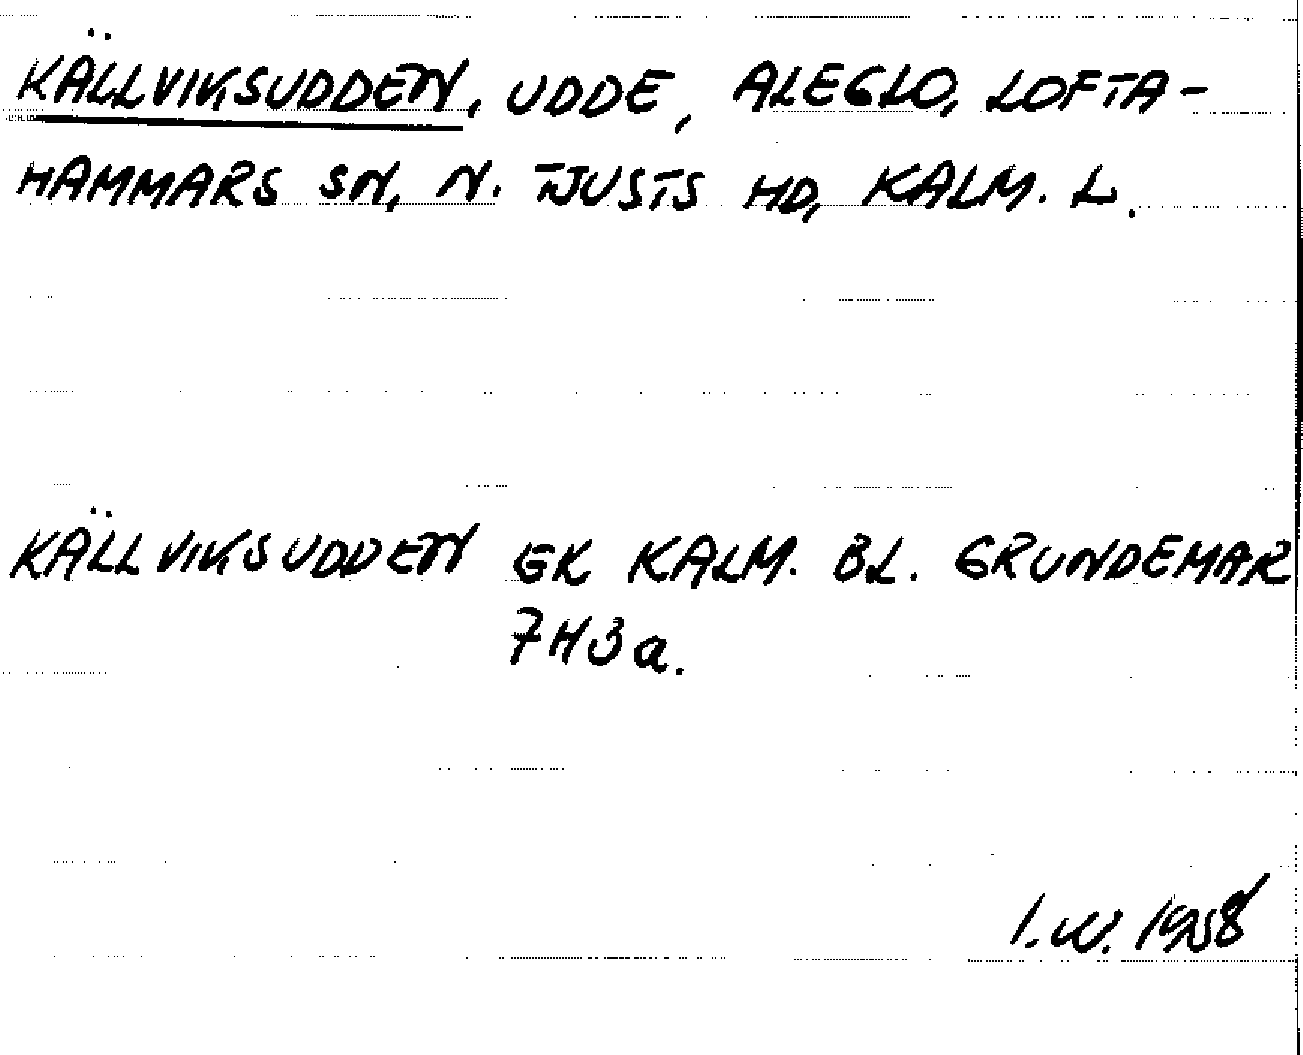 KÄLLVIKSUDDEN, UDDE, ALEGLO, LOFTA-
HAMMARS SN, N. TJUSTS HD, KALM. L.
KÄLLVIKSUDDEN EK KALM. BL. GRUNDEMAR
7H3a.
I.W. 1958